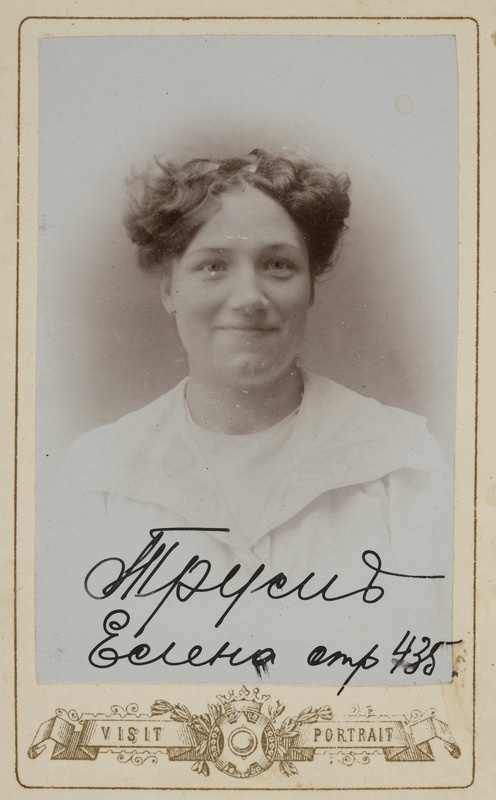 Трусид
Елена стр 435.
VISIT PORTRAIT